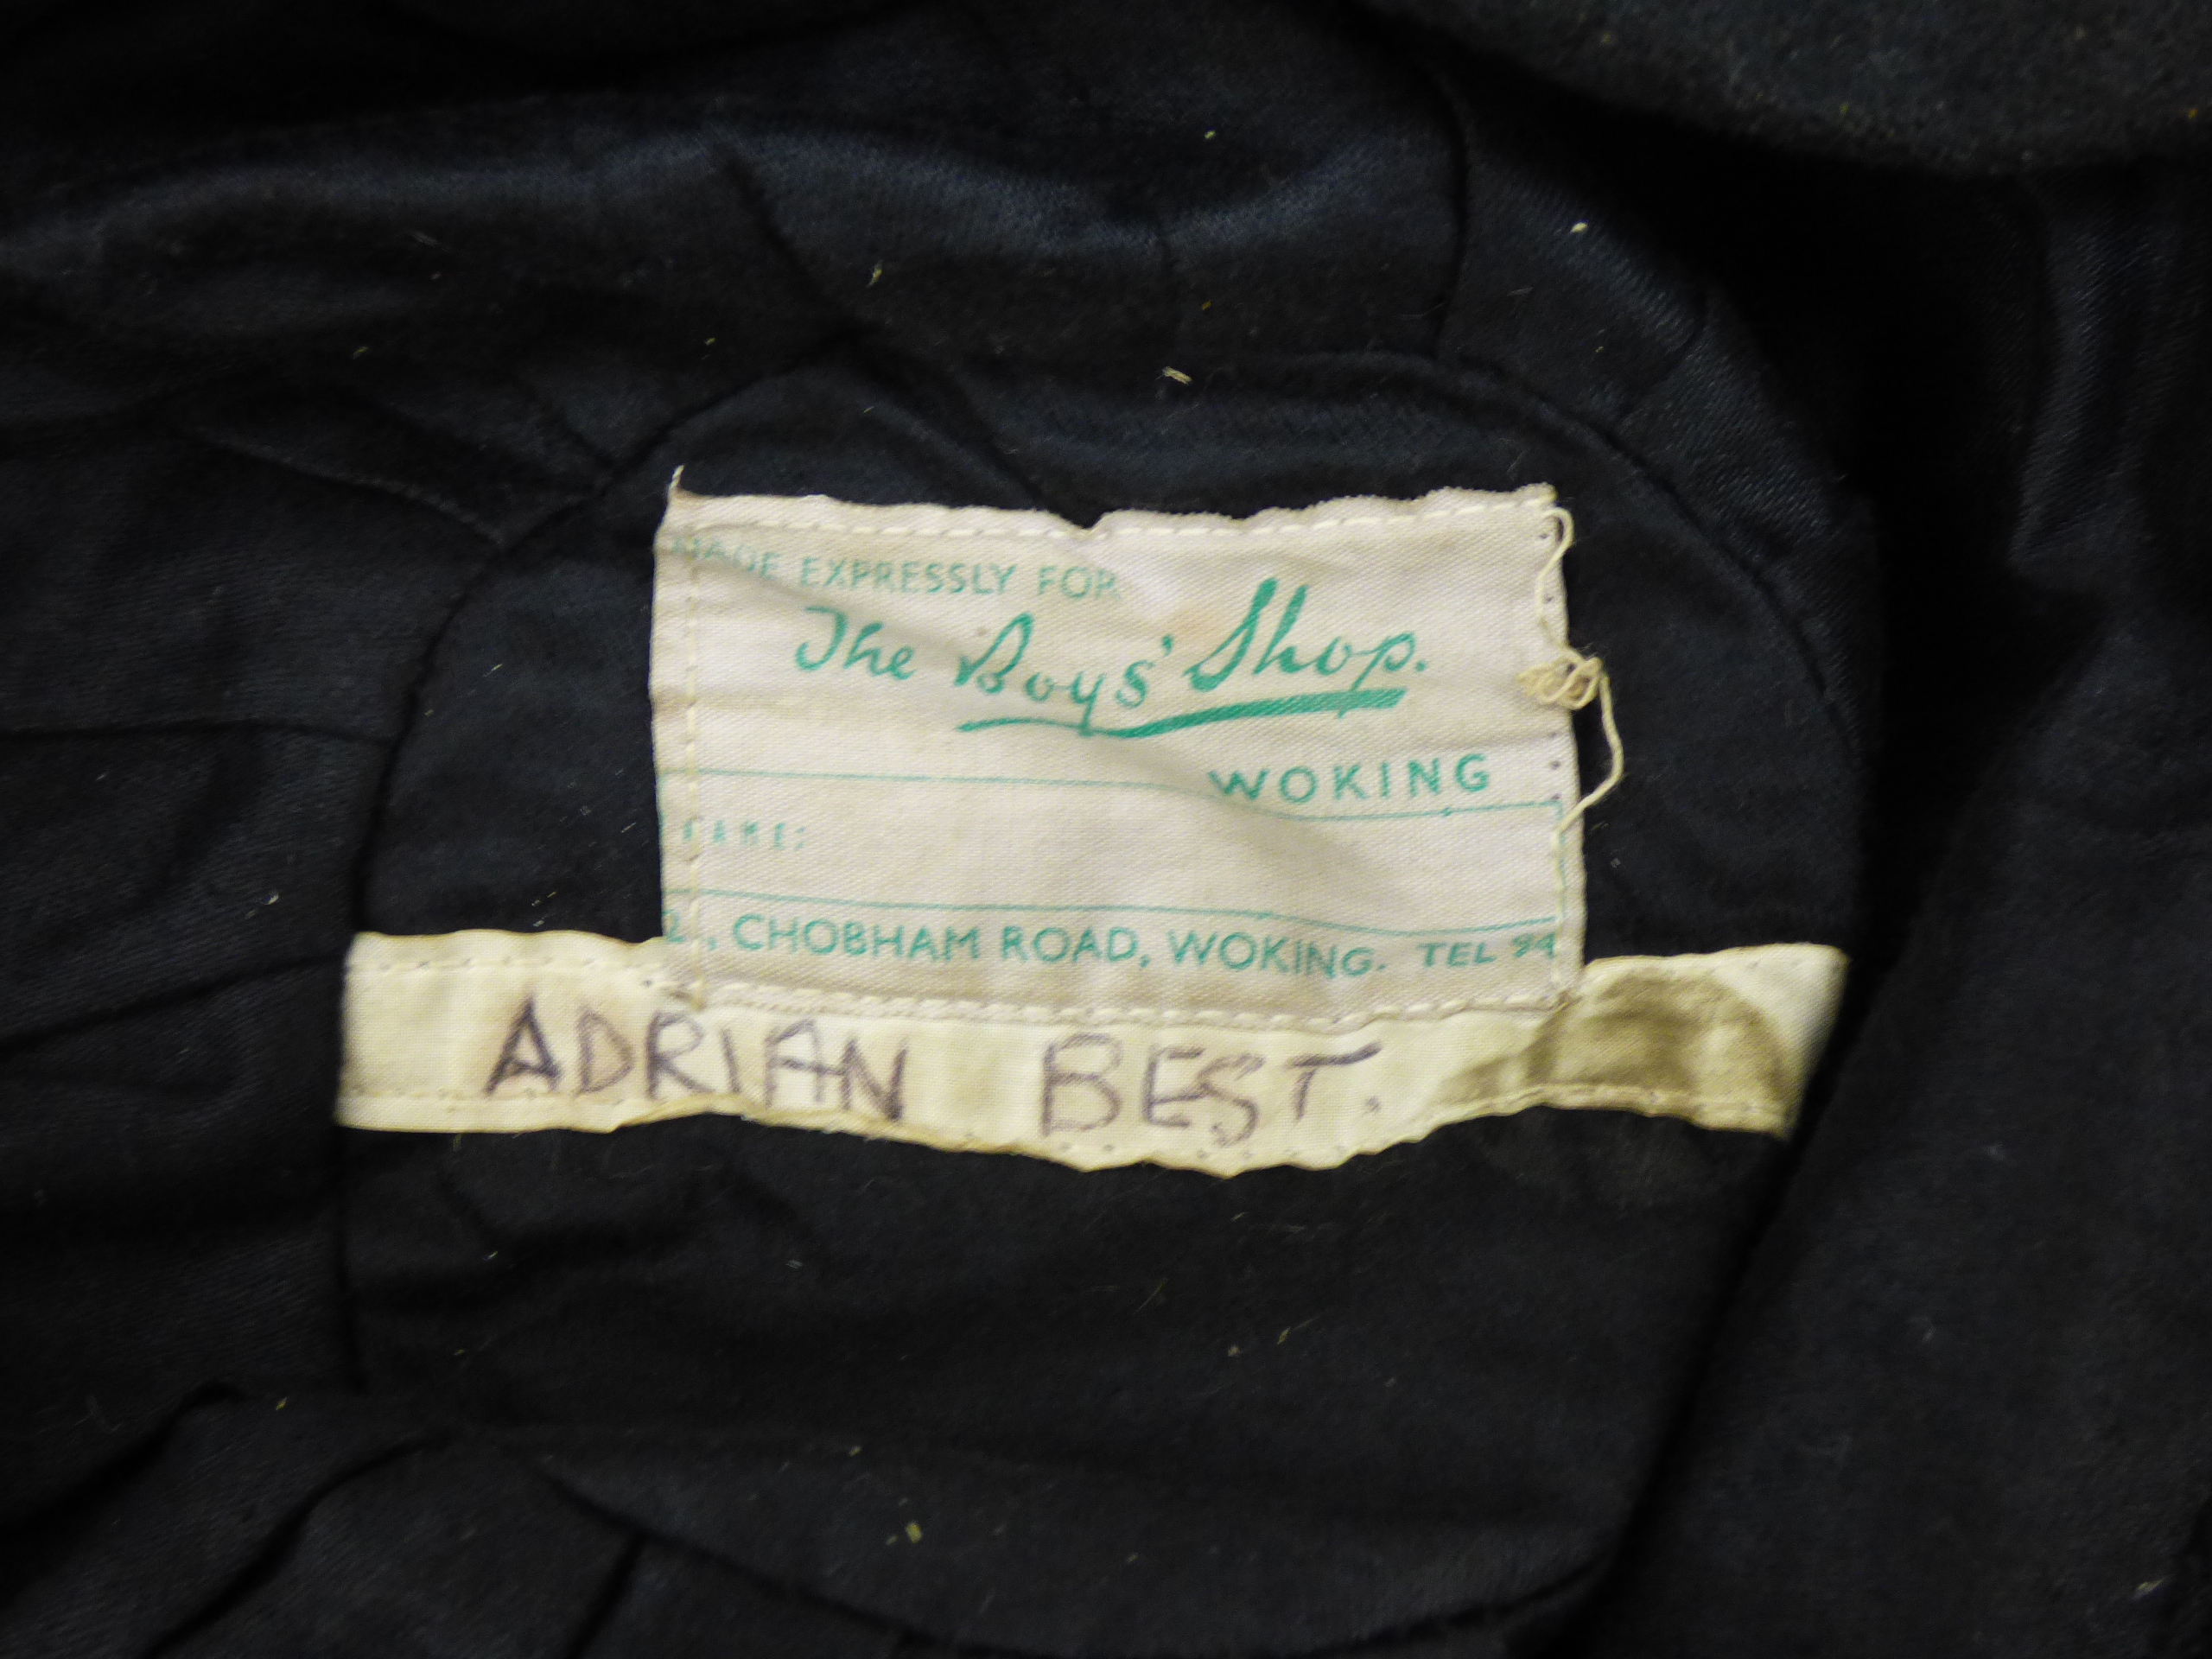 MADE EXPRESSLY FOR
The Boys' Shop.
WOKING
CHOBHAM ROAD, WOKING. TEL
ADRIAN BEST.